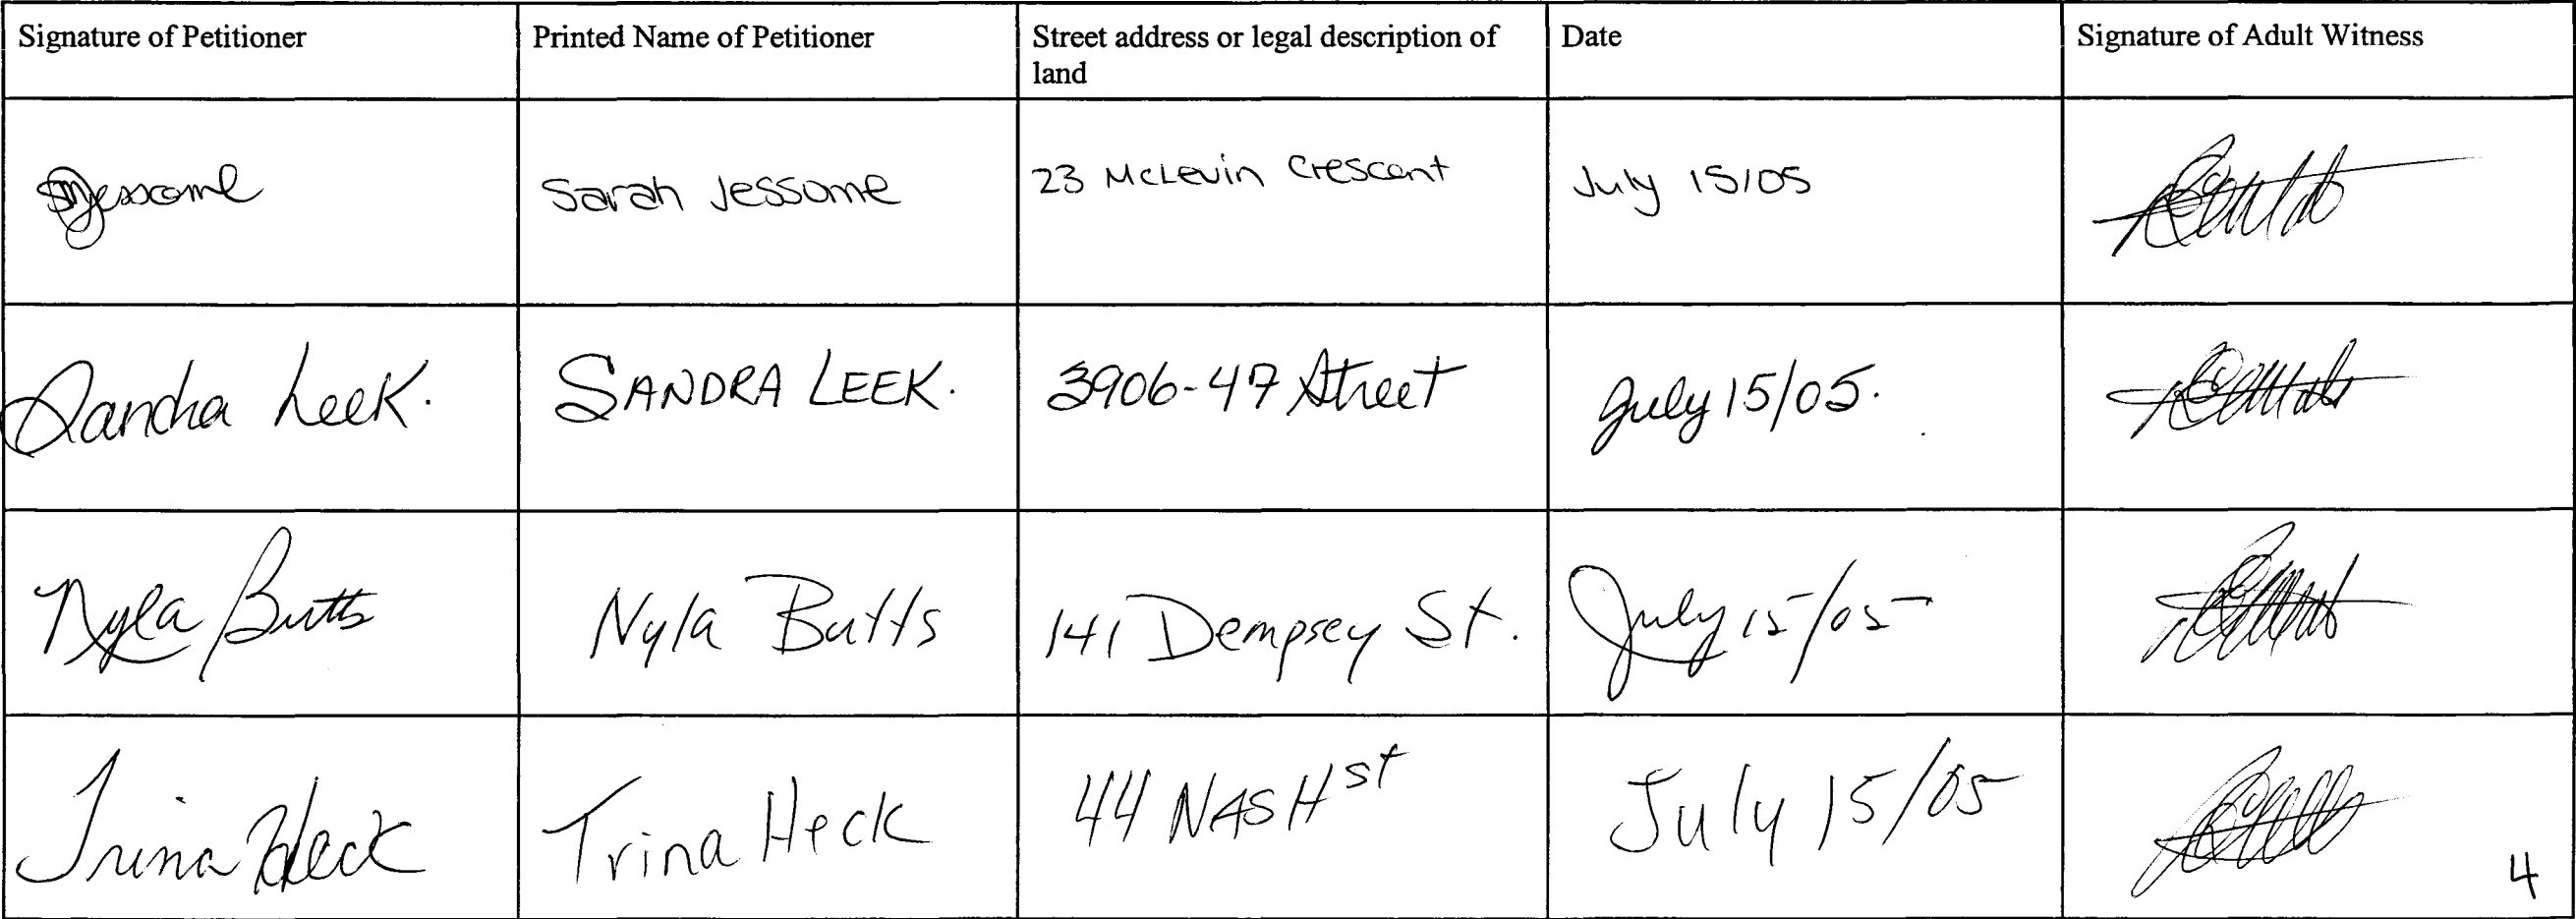 Signature of Petitioner
Printed Name of Petitioner
Street address or legal description of
land
Date
Signature of Adult Witness
SJessome
Sarah Jessome
23 McLevin Crescent
July 15/05
Sandra Leek.
SANDRA LEEK.
3906-47 Street
July 15/05.
Nyla Butts
Nyla Butts
141 Dempsey St.
July 15/05
Trina Heck
Trina Heck
44 NASH st
July 15/05
4